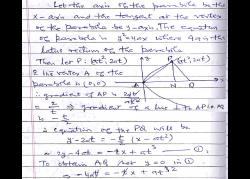 Let the axis of the parabola be the
x-axis and the tangent at the vertex
of the parabola be y-axis. The equation
of parabola is y²=4ax where 4a is the
latus rectum of the parabola
Then let P: (at², 2at)
& the vertex A of the
parabola is (0,0)
∴ gradient of AP is 2at/at²
= 2/t ⇒ gradient of a line ⊥ to AP is
= -t/2
∴ equation of the PQ will be
y-2at = -t/2 (x-at²)
①
To obtain AQ put y=0 in ①
A
N
Q